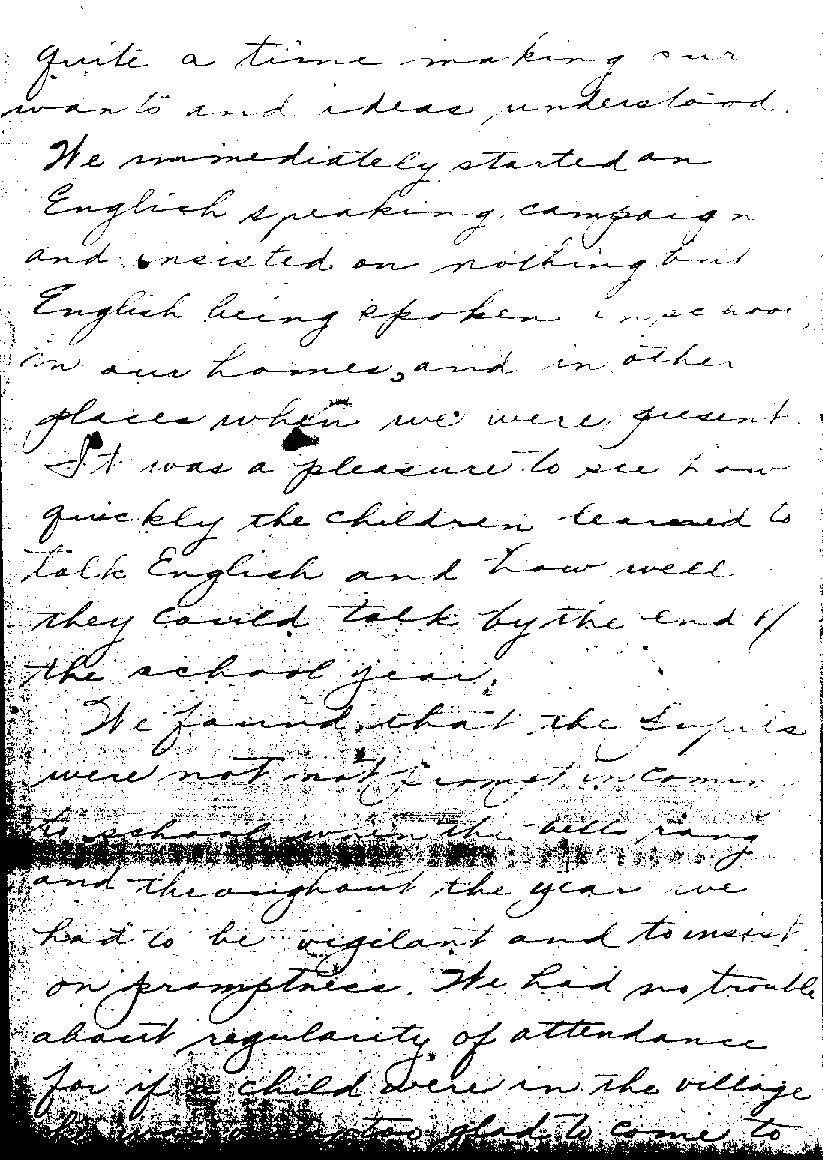 quite a time making our
wants and ideas understood.
We immediately started an
English speaking campaign
and insisted on nothing but
English being spoken in school,
in our homes, and in other
places when we were present.
It was a pleasure to see how
quickly the children learned to
talk English and how well
they could talk by the end of
the school year.
We found that the pupils
were not not prompt in comin
to school when the bell rang
and throughout the year we
had to be vigilant and to insist
on promptness. We had no trouble
about regularity of attendance
for if a child were in the village
he was too glad to come to